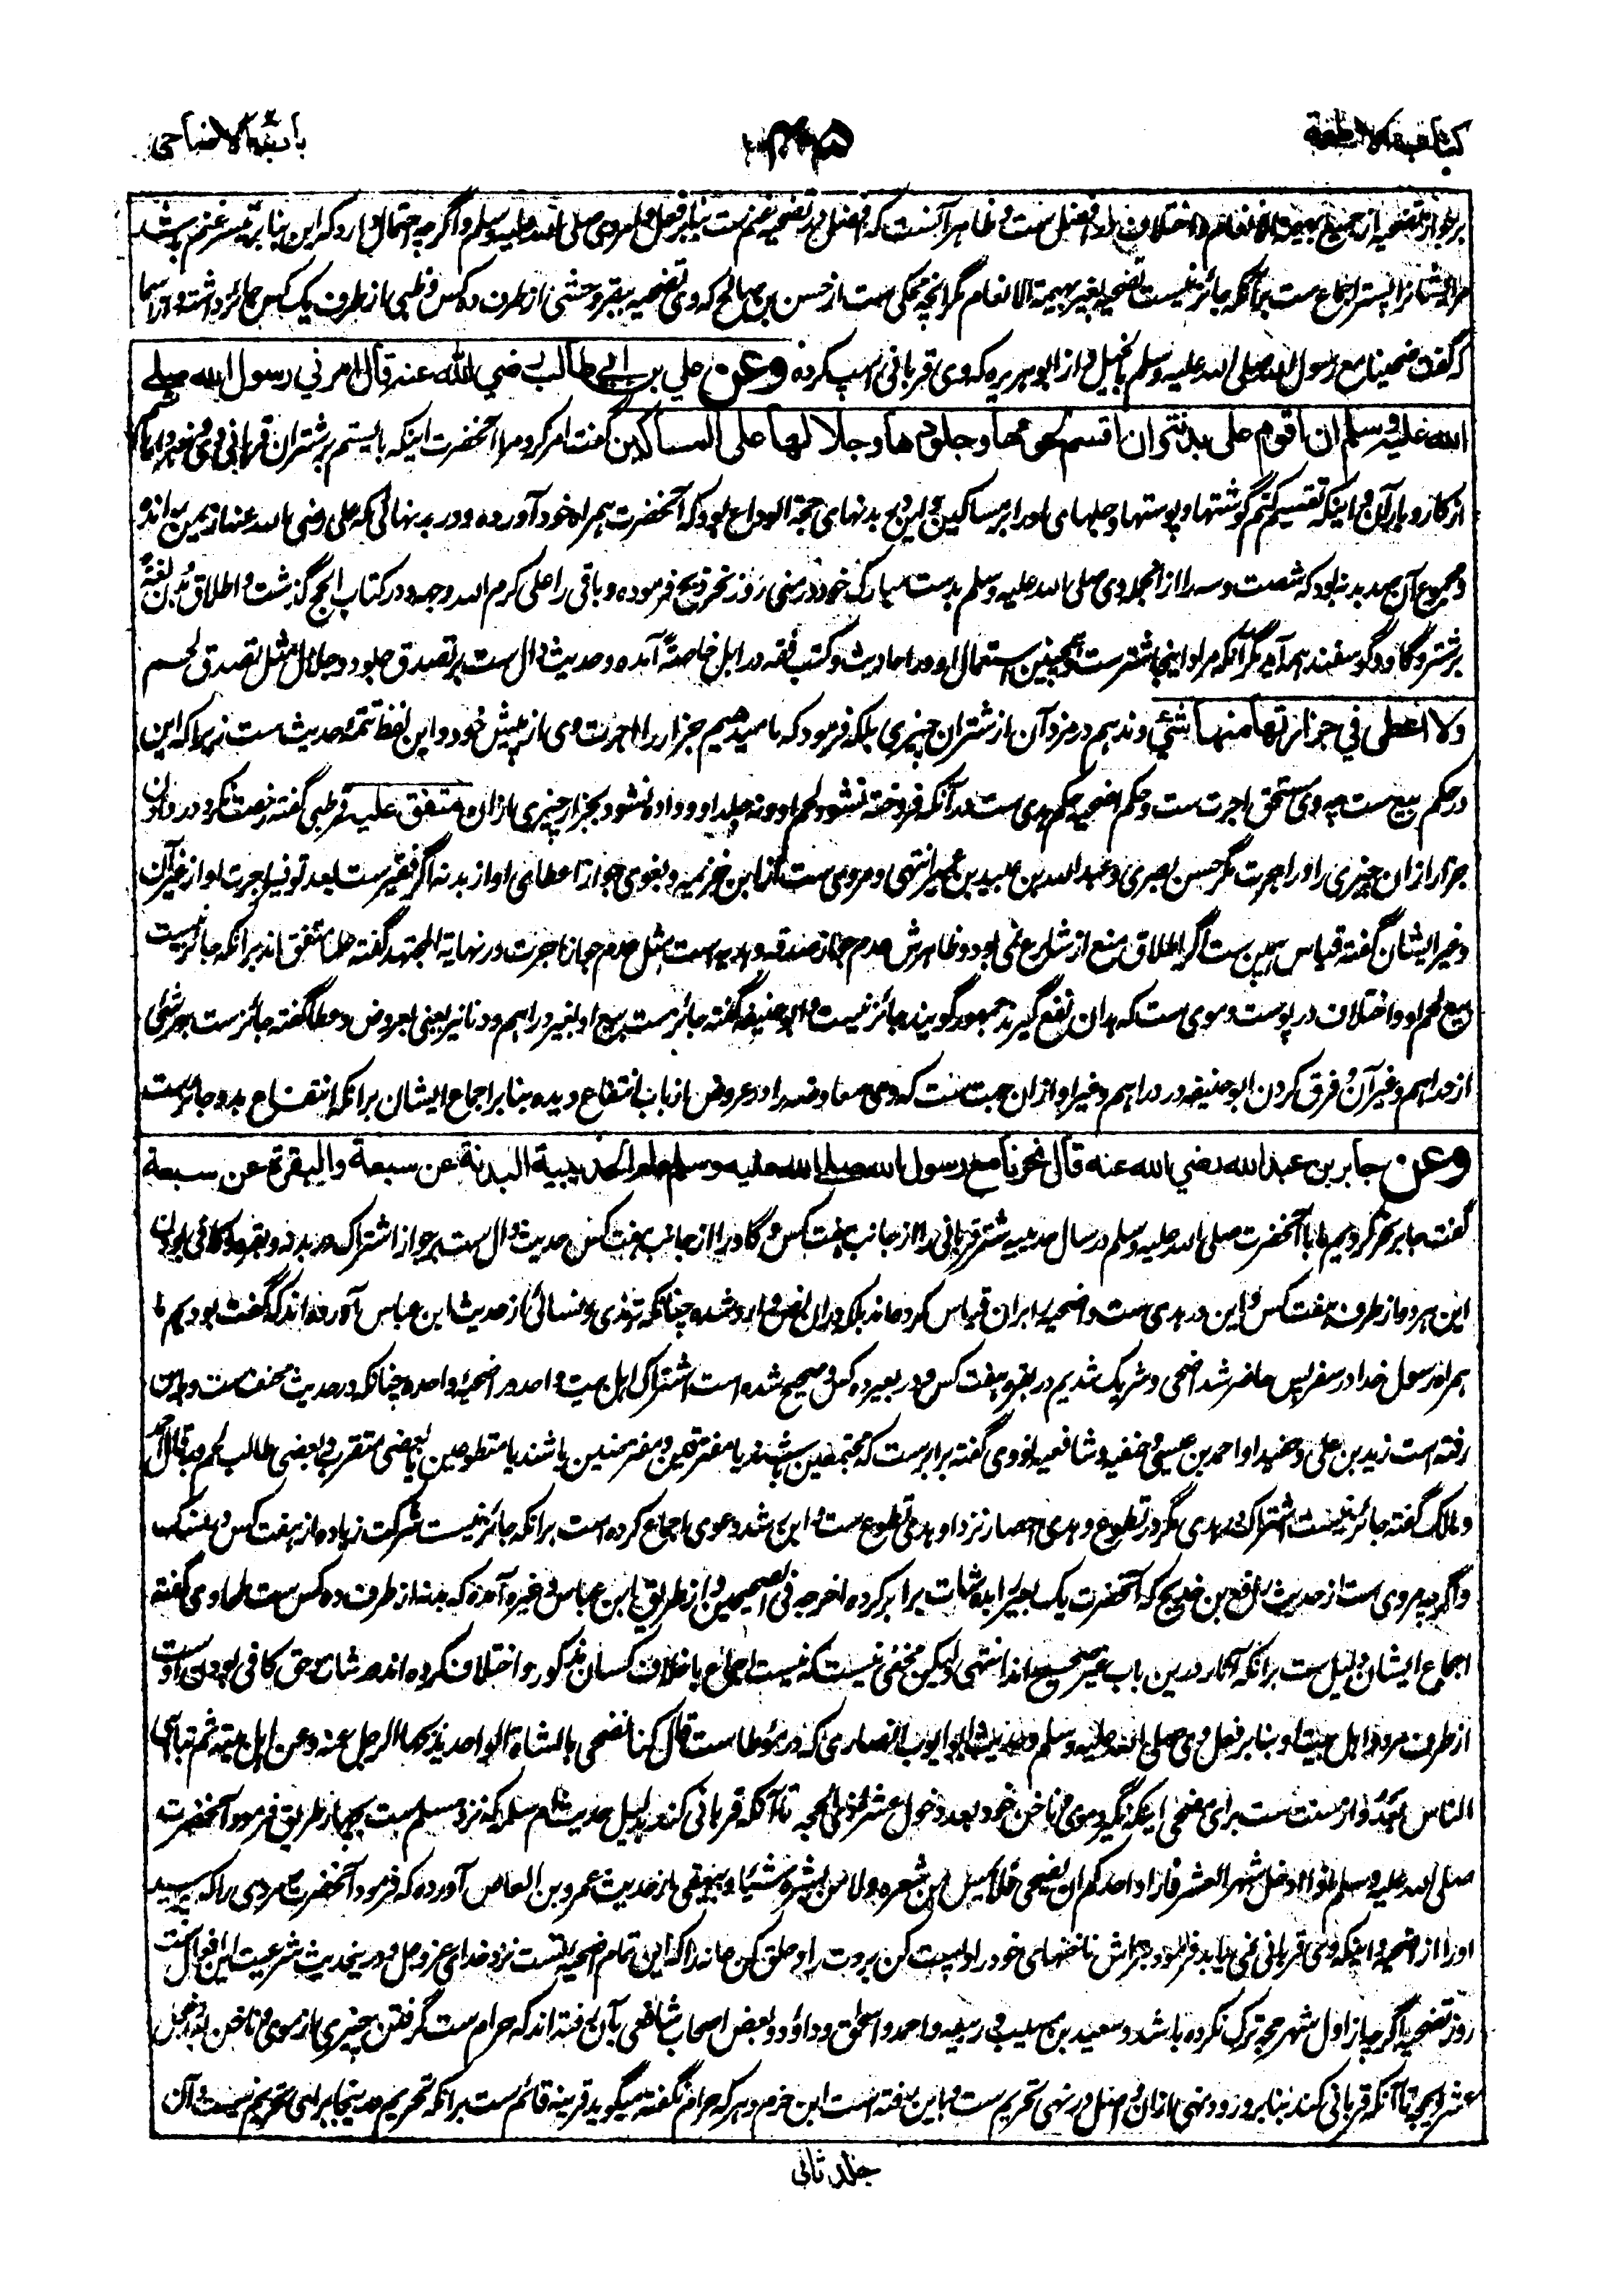 كتاب الاطعمة
باب الاضاحى
بر جواز تضحیه از جمیع بهیمة الانعام و اختلاف در افضل ست و ظاهر آنست که افضل در تضحیه غنم ست بنابر فعل و امر وی صلی الله علیه وسلم و اگرچه احتمال دارد که این بنابر تیسر غنم باشد
مر ایشان را پستر اجماع ست بر آنکه جائز نیست تضحیه بغیر بهیمة الانعام مگر آنچه محکی ست از حسن بن صالح که وی تضحیه ببقر وحشی از طرف ده کس و ظبی از طرف یک کس جائز داشته و از اسما
که گفت ضحینا مع رسول الله صلی الله علیه وسلم بخیل و از ابو هریره که وی قربانی اسپ کرده وعن علي بن ابي طالب رضي الله عنه قال امرني رسول الله صلے
الله عليه وسلم ان اقوم على بدنته وان اقسم لحومها وجلودها وجلالها على المساكين گفت امر کرد مرا آنحضرت اینکه بایستم بر شتران قربانی وی و خبردار باشم
از کار و بار آن و اینکه تقسیم کنم گوشتها و پوستها و جلهای او را بر مساکین و این در بدنهای حجة الوداع بود که آنحضرت همراه خود آورده و در بدنهائی که علی رضی الله عنه از یمن رسانده
و مجموع آن صد بدنه بود که شصت و سه را از انجمله وی صلی الله علیه وسلم بدست مبارک خود در منی روز نحر ذبح فرموده و باقی را علی کرم الله وجهه و در کتاب الحج گذشت و اطلاق بدن لغةً
بر شتر و گاو و گوسفند همه آید مگر آنکه مراد اینجا شتر ست و همچنین استعمال او در احادیث و کتب فقه در ابل خاصةً آمده و حدیث دال ست بر تصدق جلود و جلال مثل تصدق لحم
ولا اعطي في جزارتها منها شيئ و ندهم در مزد آن از شتران چیزی بلکه فرمود که ما میدهیم جزار را اجرت وی از پیش خود و این لفظ تتمه حدیث ست زیرا که این
در حکم بیع ست چه وی مستحق اجرت ست و حکم اضحیه حکم هدی ست در آنکه فروخته نشود لحم او و نه جلد او و داده نشود بجزار چیزی ازان متفق عليه قرطبی گفته رخصت نکرد در دادن
جزار ازان چیزی را در اجرت مگر حسن بصری و عبد الله بن عبید بن عمیر انتهی و مروی ست از ابن خزیمه و بغوی جواز اعطای او از بدنه اگر فقیر ست بعد توفیه اجرت او از غیر آن
و غیر ایشان گفته قیاس همین ست اگر اطلاق منع از شارع نمی بود و ظاهرش عدم جواز صدقه و هدیه است مثل عدم جواز اجرت و در نهایة المجتهد گفته علما متفق اند بر آنکه جائز نیست
بیع لحم او و اختلاف در پوست و موی ست که بدان نفع گیرند جمهور گویند جائز نیست و ابو حنیفه گفته جائز ست بیع او بغیر دراهم و دنانیر یعنی بعروض و عطا گفته جائز ست بهر شئی
از دراهم و غیر آن و فرق کردن ابو حنیفه در دراهم و غیر او از ان جهت ست که وی معاوضه را در عروض از باب انتفاع دیده بنابر اجماع ایشان بر آنکه انتفاع بدو جائز ست
وعن جابر بن عبد الله رضي الله عنه قال نحرنا مع رسول الله صلے الله عليه وسلم عام الحديبية البدنة عن سبعة والبقرة عن سبعة
گفت جابر نحر کردیم ما با آنحضرت صلی الله علیه وسلم در سال حدیبیه شتر قربانی را از جانب هفت کس و گاو را از جانب هفت کس حدیث دال ست بر جواز اشتراک در بدنه و بقره و کافی بودن
این هر دو از طرف هفت کس و این در هدی ست و اضحیه را بران قیاس کرده اند بلکه دران نص وارد شده چنانکه ترمذی و نسائی از حدیث ابن عباس آورده اند که گفت بودیم ما
همراه رسول خدا در سفر پس حاضر شد اضحی و شریک شدیم در بقر و هفت کس و در بعیر ده کس و صحیح شده است اشتراک اهل بیت واحد در اضحیه واحده چنانکه در حدیث مخنف ست و باین
رفته است زید بن علی و حفید او احمد بن عیسی و حنفیه و شافعیه نووی گفته برابر ست که مجتمعین باشند یا مفترقین و مفترضین باشند یا متطوعین یا بعضی متقرب و بعضی طالب لحم و به قال احمد
و مالک گفته جائز نیست اشتراک در هدی مگر در تطوع و هدی احصار نزد او هدی تطوع ست و ابن رشد دعوی اجماع کرده است بر آنکه جائز نیست شرکت زیاده از هفت کس در نسک
و اگرچه مروی ست از حدیث رافع بن خدیج که آنحضرت یک بعیر را بده شات برابر کرده اخرجه فی الصحیحین و از طریق ابن عباس و غیره آمده که بدنه از طرف ده کس ست طحاوی گفته
اجماع ایشان دلیل ست بر آنکه آثار درین باب غیر صحیح اند انتهی و لیکن مخفی نیست که نیست اجماع با خلاف کسان مذکور و اختلاف کرده اند در شات و حق کافی بودن اوست
از طرف مرد و اهل بیت او بنابر فعل وی صلی الله علیه وسلم و حدیث ابو ایوب انصاری که در موطا ست قال کنا نضحی بالشاة الواحدة یذبحها الرجل عنه و عن اهل بیته ثم تباهی
الناس بعد و از سنت ست برای مضحی اینکه نگیرد موی و ناخن خود بعد دخول عشر ذی الحجه تا آنکه قربانی کند بدلیل حدیث ام سلمه که نزد مسلم ست بچهار طریق فرمود آنحضرت
صلی الله علیه وسلم اذا دخل شهر العشر فاراد احدکم ان یضحی فلا یمس من شعره ولا من بشره شیئا و بیهقی از حدیث عمرو بن العاص آورده که فرمود آنحضرت مردی را که پرسید
او را از اضحیه و اینکه وی قربانی نمی یابد فرمود بتراش ناخنهای خود را و پست کن بروت را و حلق کن عانه را که این تمام اضحیه تست نزد خدای عز و جل و درینحدیث شرعیت این افعال ست
روز تضحیه اگرچه از اول شهر حجه ترک نکرده باشد و سعید بن مسیب و ربیعه و احمد و اسحق و داؤد و بعض اصحاب شافعی بآن رفته اند که حرام ست گرفتن چیزی از موی و ناخن بعد دخول
عشر ذیحجه تا آنکه قربانی کند بنابر ورود نهی ازان و اصل در نهی تحریم ست و باین رفته است ابن حزم و هر که حرام نگفته میگوید قرینه قائم ست بر آنکه تحریم در اینجا برای تحریم نیست و آن
جلد ثانی